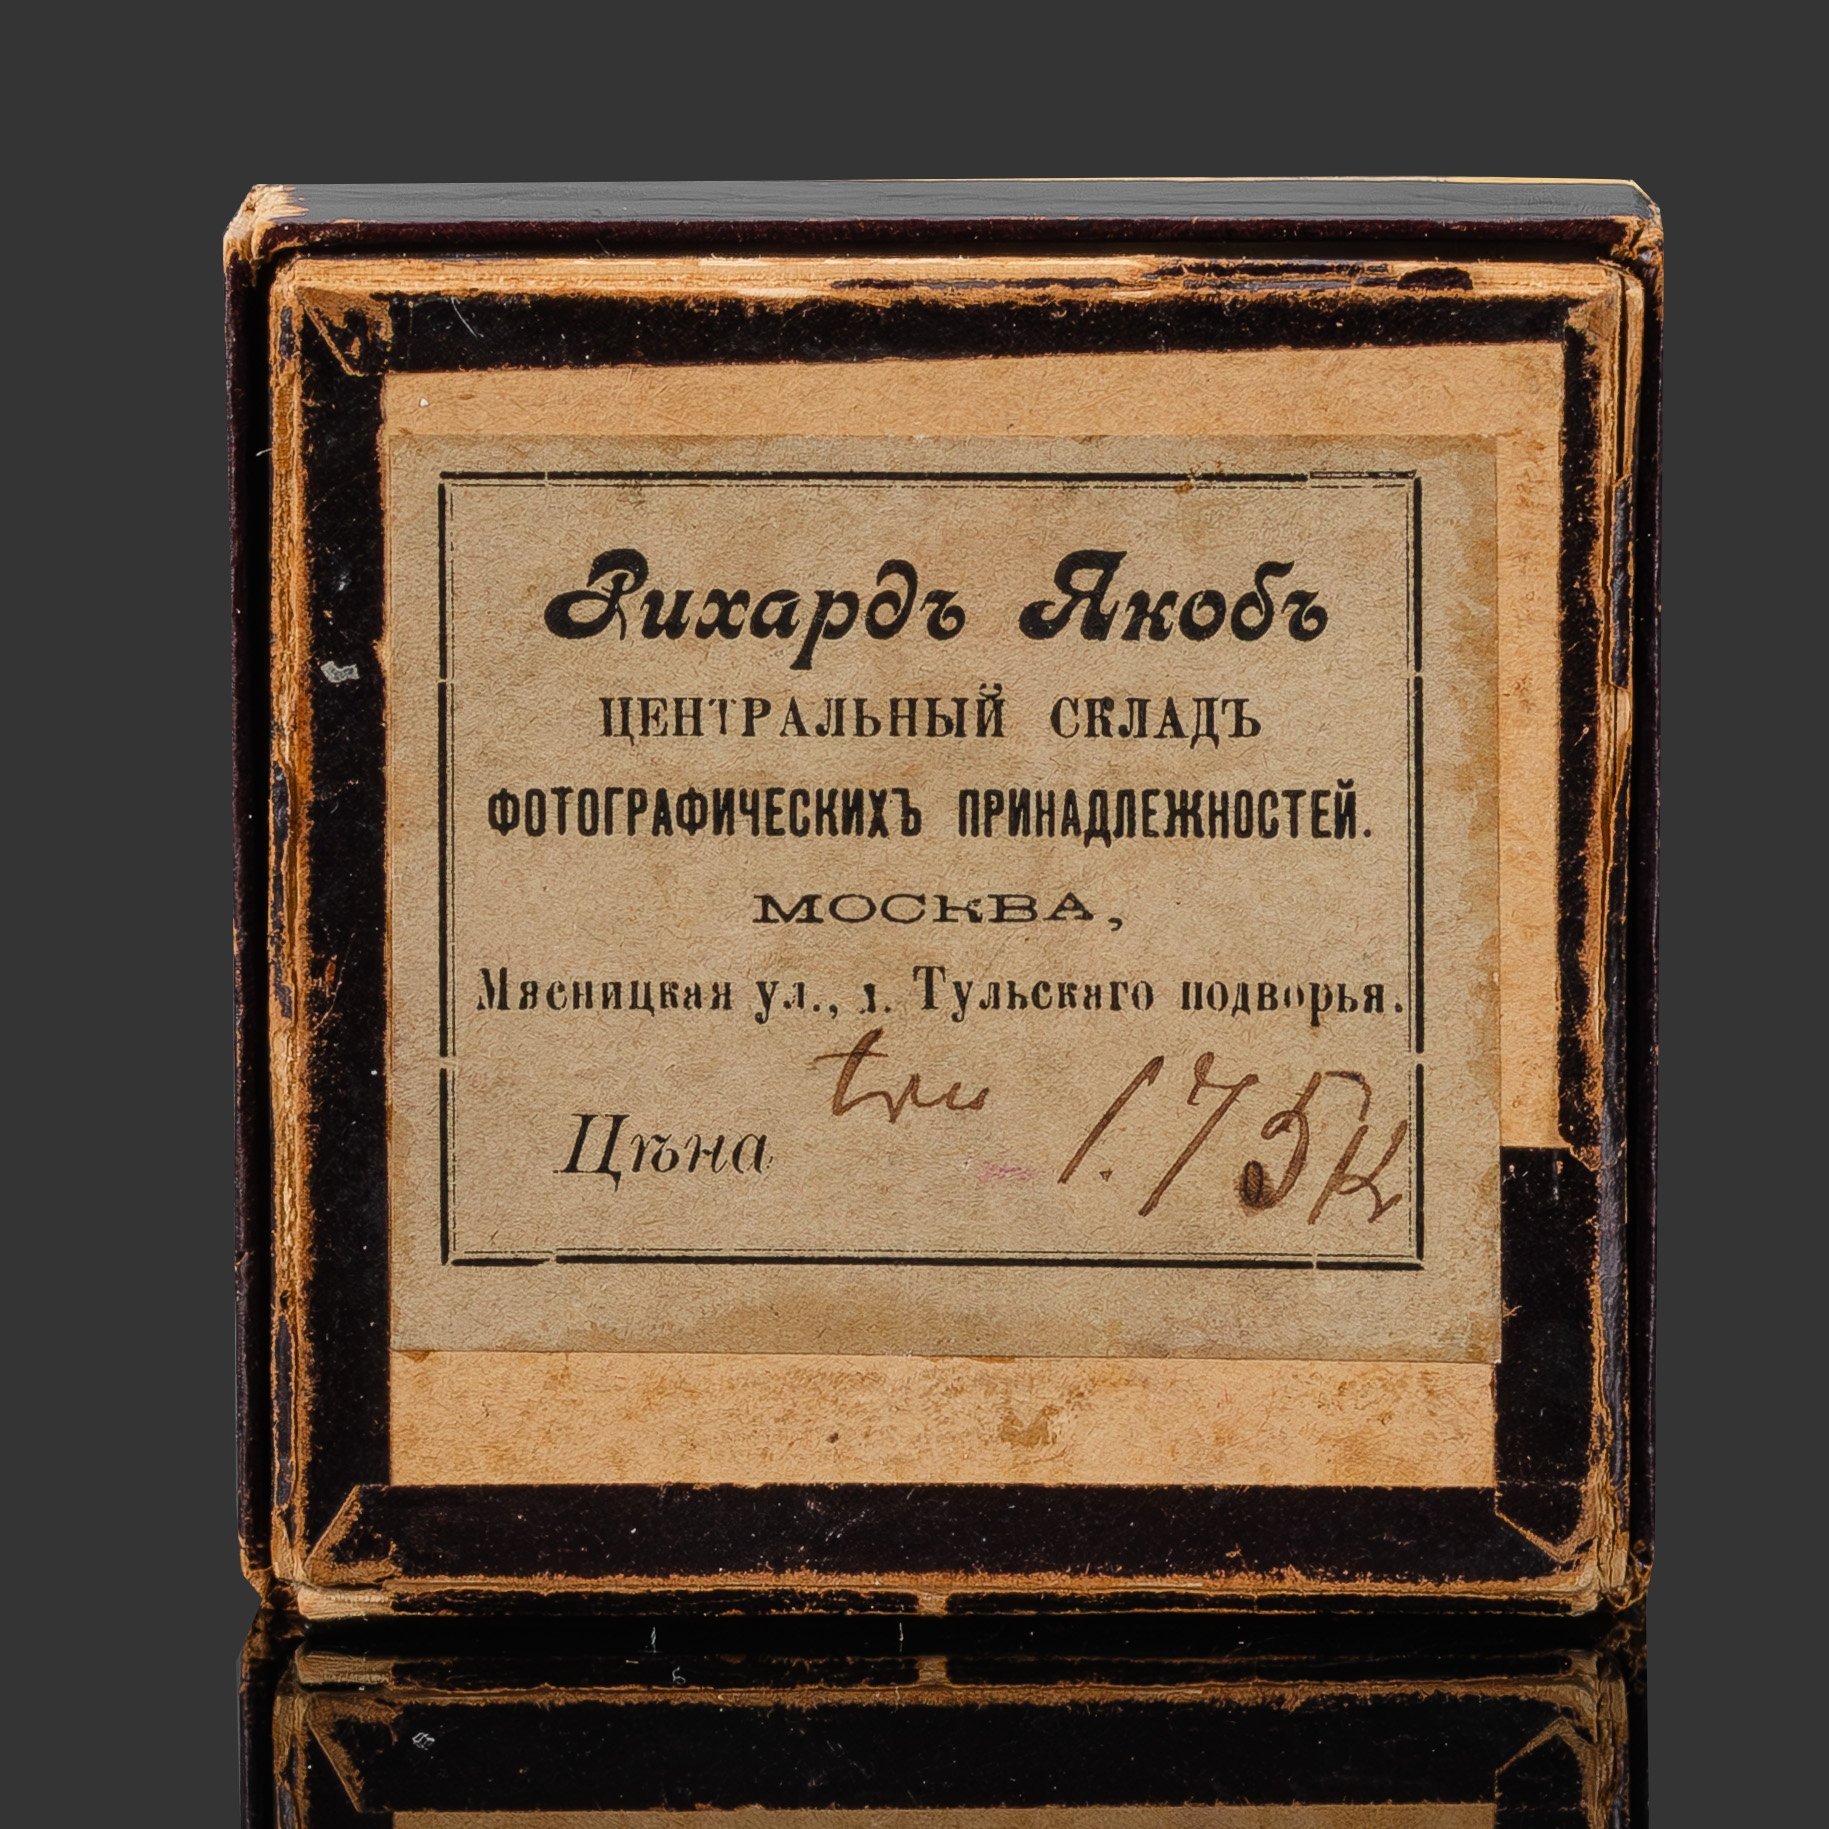 Рихардъ Якобъ
ЦЕНТРАЛЬНЫЙ СКЛАДЪ
ФОТОГРАФИЧЕСКИХЪ ПРИНАДЛЕЖНОСТЕЙ.
МОСКВА,
Мясницкая ул., д. Тульскаго подворья.
Цѣна 1.75к